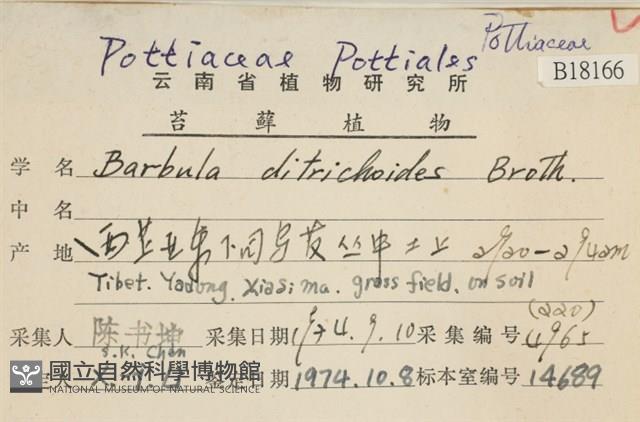 Pottiaceae Pottiales
Pottiaceae
B18166
云南省植物研究所
苔藓植物
学名 Barbula ditrichoides Broth.
中名
产地 西 下 草丛中土上
Tibet. Yadong. Xiasima. grass field, on soil
(220)
采集人 陈书坤 采集日期 1974.9.10 采集编号 4965
S.K. Chen
定人 定日期 1974.10.8 标本室编号 14689
國立自然科學博物館
NATIONAL MUSEUM OF NATURAL SCIENCE